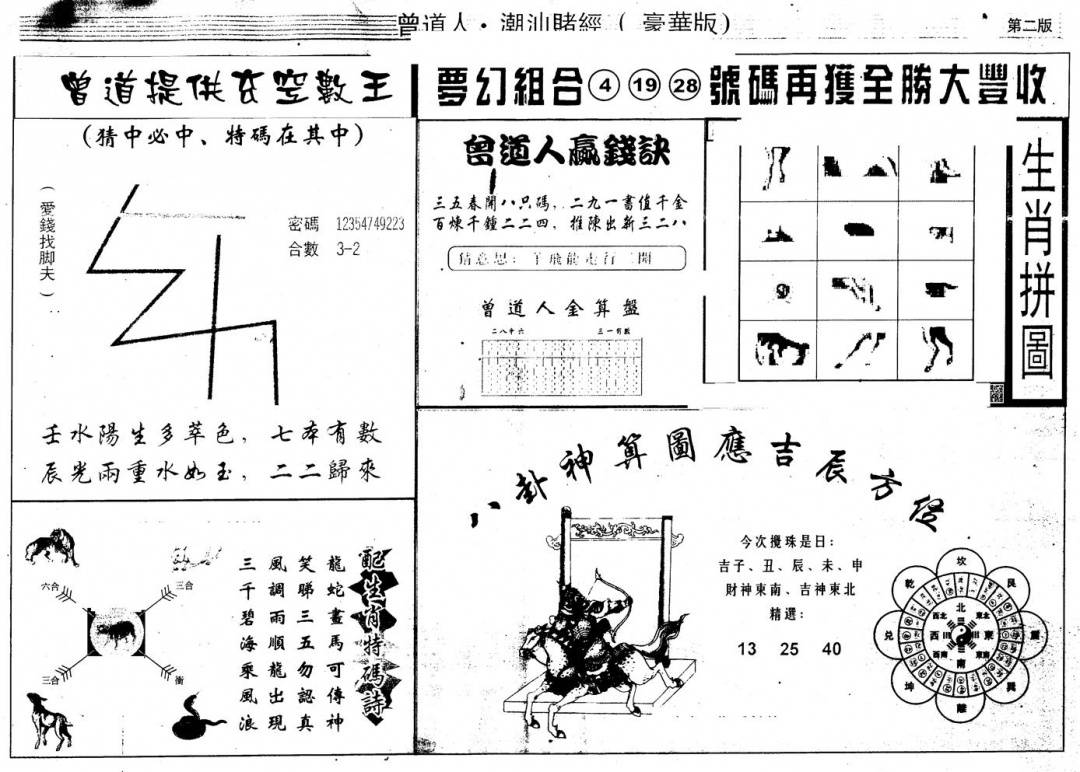 曾道人·潮汕賭經(豪華版)
第二版
曾道提供玄空數王
(猜中必中、特碼在其中)
(愛錢找脚夫)
密碼 12354749223
合數 3-2
壬水陽生多萃色,七本有數
辰光兩重水如玉,二二歸來
夢幻組合④⑲㉘號碼再獲全勝大豐收
曾道人贏錢訣
三五春開八只碼,二九一書值千金
百煉千鍾二二四,推陳出新三二八
猜意思:羊飛龍走行二開
曾道人金算盤
二八中六
生肖拼圖
配生肖特碼詩
龍蛇畫馬可傳神
笑睇三五勿認真
風調雨順龍出現
三千碧海乘風浪
六合
三合
三合
衝
八卦神算圖應吉辰方位
今次攪珠是日:
吉子、丑、辰、未、申
財神東南、吉神東北
精選:
13 25 40
坎
艮
震
巽
離
坤
兑
乾
北
東北
東
東南
南
西南
西
西北